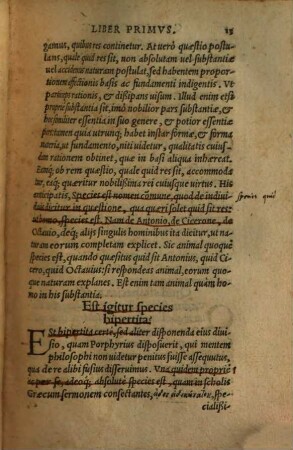 LIBER PRIMVS. 13
gamus, quibus res continetur. At uerò quæstio postu-
lans, quale quid res sit, non absolutam uel substantiæ
uel accidentis naturam postulat, sed habentem propor-
tionem affectionis basis ac fundamenti indigentis. Vt
participes rationis, & disipans uisum. Illa enim etsi
propriè substantia sit, imò nobilior pars substantiæ, &
huiusmodi essentia in suo genere, & potior essentia
pecunem quia utrunque habet instar formæ, & forma
materia, ut fundamento, niti uidetur, qualitatis cuius-
dam rationem obtinet, quæ in basi aliqua inhæreat.
ob rem quæstio, quale quid res sit, accommoda-
tur, quæritur nobilissima rei cuiusque uirtus. His
anticipatis, Species est nomen cōmune, quod de indiui-
in quæstione, qua quæri solet quid res sit
species quid
ultimo, species est. Nam de Antonio, de Cicerone, de
Octauio, deque alijs singulis hominibus ita dicitur, ut na-
turam eorum completam explicet. Sic animal quoque
species est, quando quæsitus quid sit Antonius, quid Ci-
cero, quid Octauius: si respondeas animal, eorum quo-
que naturam explanes. Est enim tam animal quàm ho-
mo in his substantia.
Est igitur species
bipertita:
Est bipertita certè, sed aliter disponenda eius diui-
sio, quam Porphyrius disposuerit, qui mentem
philosophi non uidetur penius suisse assequutus,
qua de re alibi fusius disseruimus. Vna quidem propriè
ac per se, adeoque absolutè species est, quam in scholis
Græcum sermonem consectantes, spe-
cialissi-